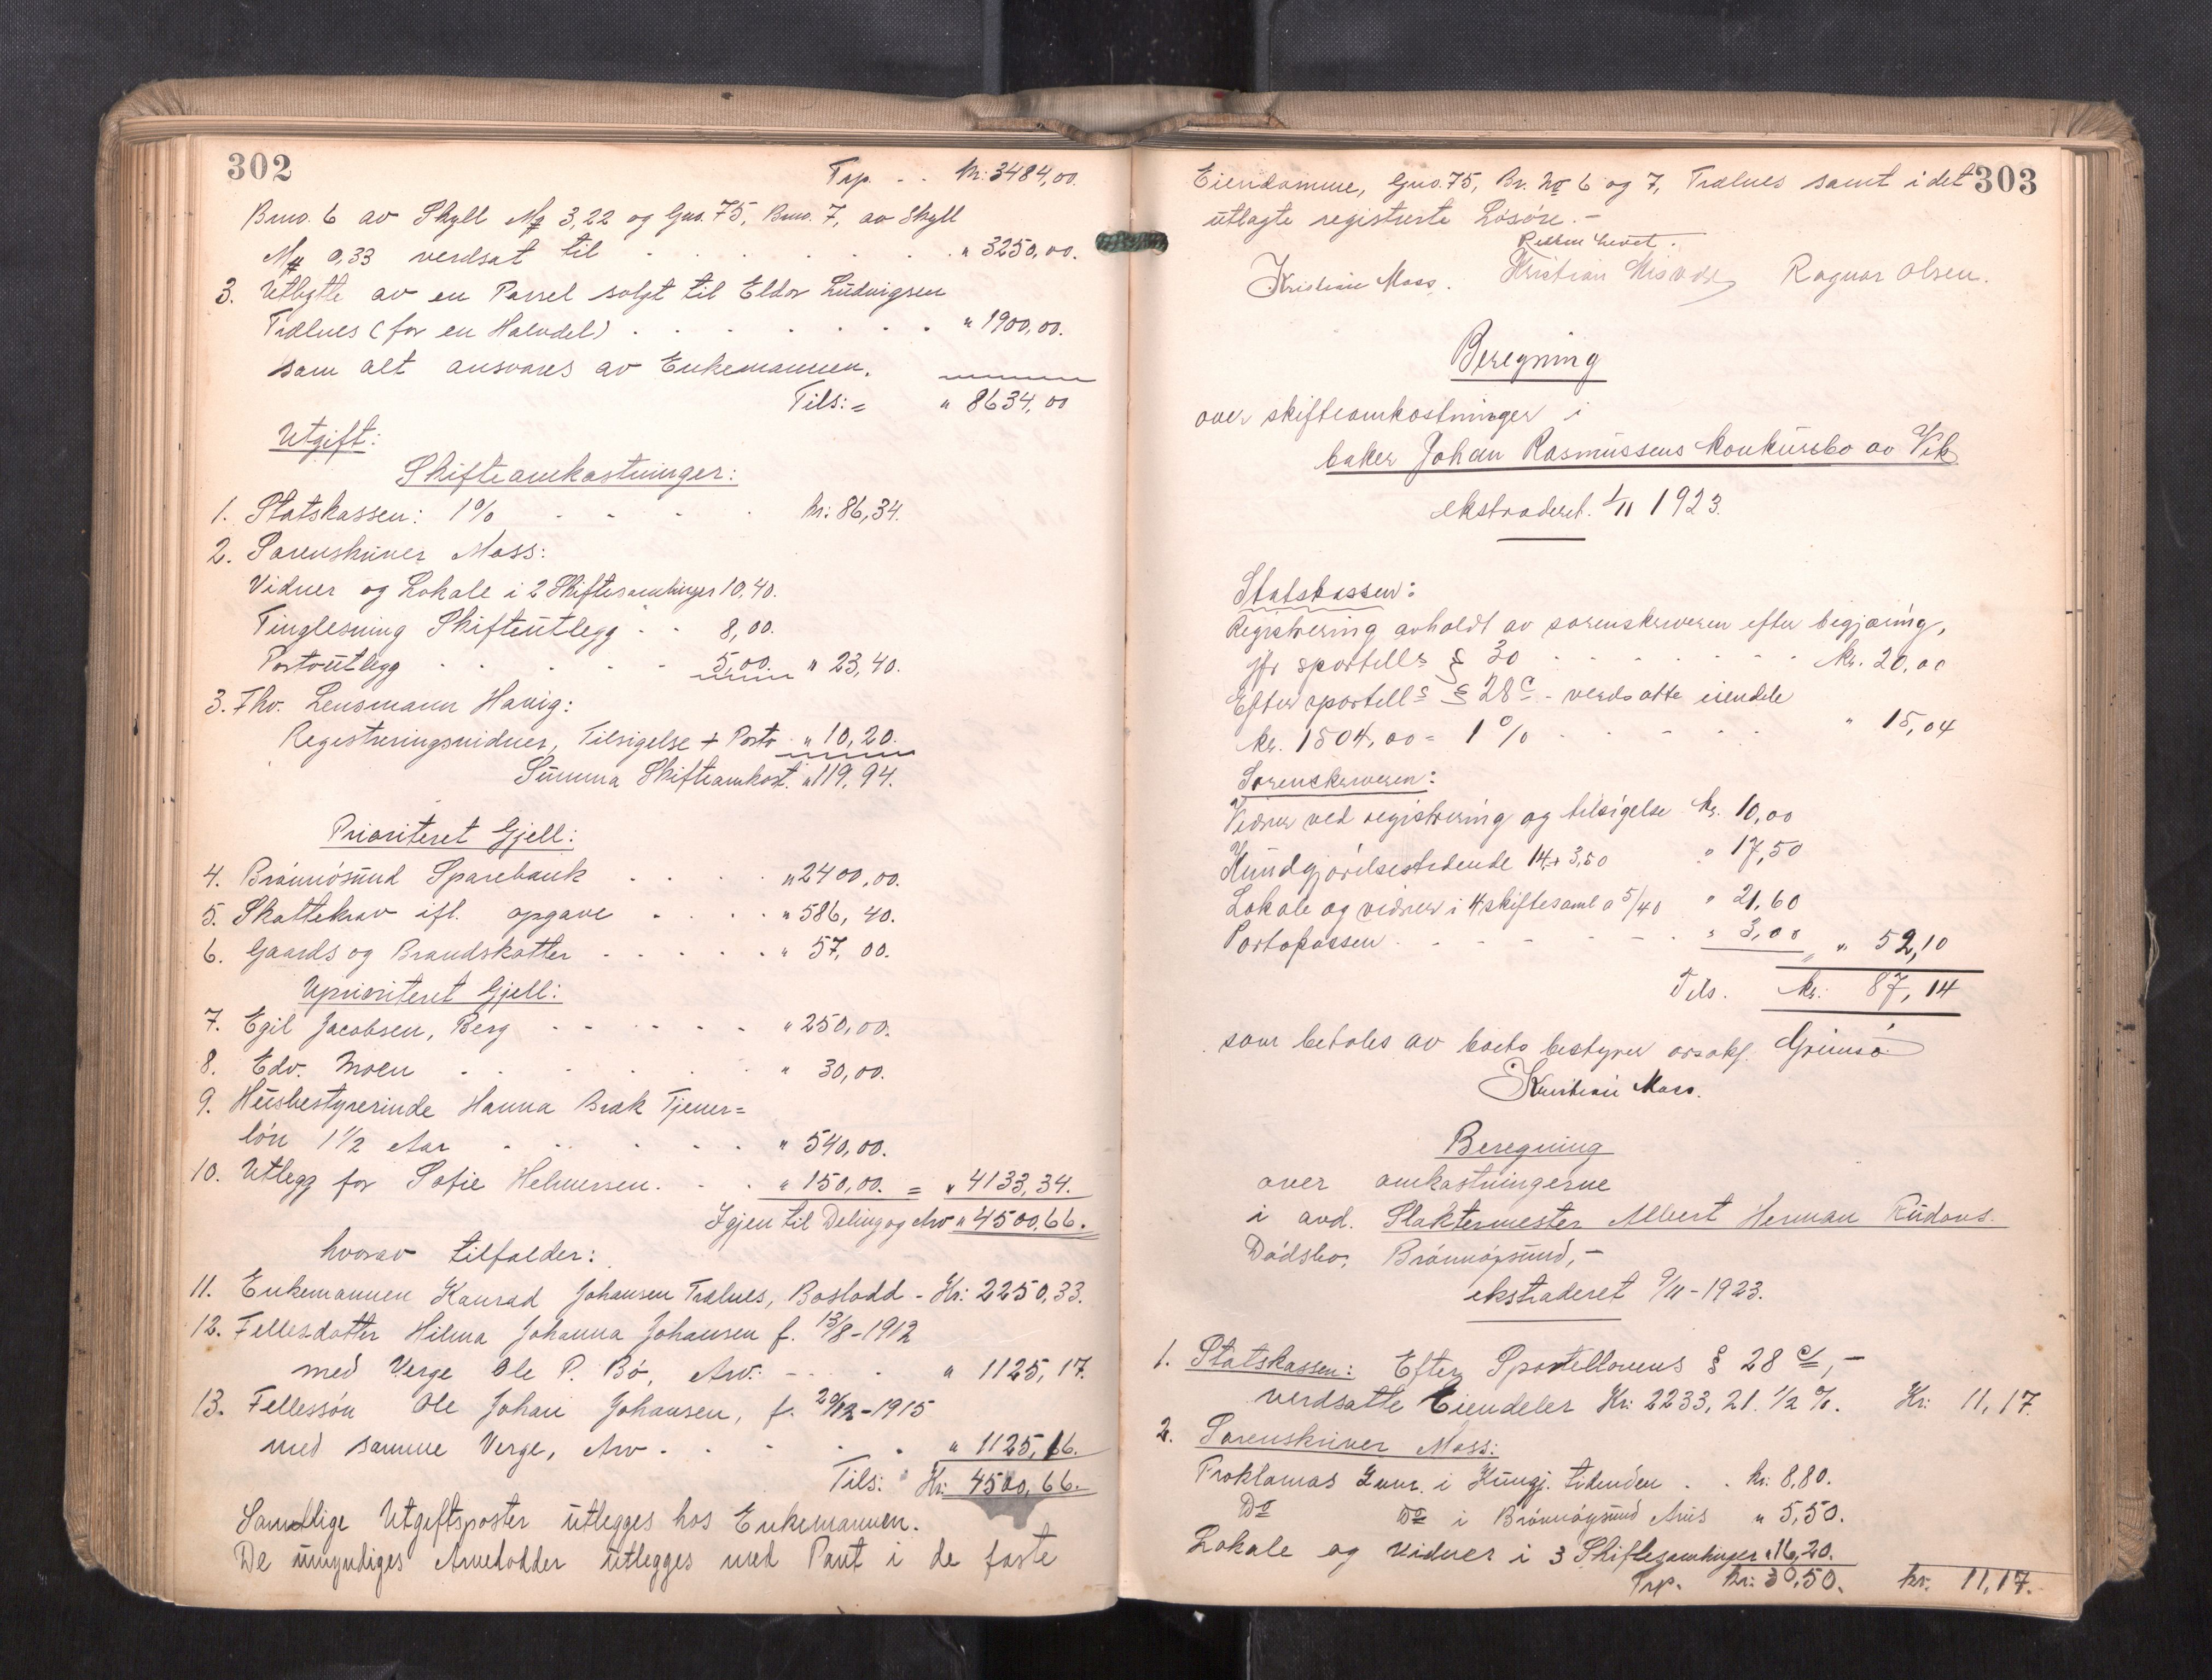 302
Trp. . . Kr: 3484,00.
Bno. 6 av Skyll Mk 3,22 og Gno. 75, Bno. 7, av Skyll
Mk 0,33 verdsat til . . . . . . . " 3250,00.
3. Utbytte av en Parsel solgt til Eldor Ludvigsen
Trælnes (for en Halvdel) . . . . . . . " 1900,00.
som alt ansvares av Enkemannen.
Tils:= " 8634,00
Utgift:
Skifteomkostninger:
1. Statskassen: 1% - - - . Kr: 86,34.
2. Sorenskriver Moss:
Vidner og Lokale i 2 Skiftesamlinger 10,40.
Tinglesning Skifteutlegg - - 8,00.
Portoutlegg - - - - - 5,00. " 23,40.
3. Fhv. Lensmann Havig:
Registreringsvidner, Tilsigelse + Porto " 10,20.
Summa Skifteomkost. " 119,94.
Prioritert Gjell:
4. Brönnösund Sparebank . . . . " 2400,00.
5. Skattekrav ifl. opgave . . . . " 586,40.
6. Gaards og Brandskatter . . . . . " 57,00.
Uprioritert Gjell:
7. Egil Jacobsen, Berg - - - - - - " 250,00.
8. Edv. Moen . . . . . . " 30,00.
9. Husbestyrerinde Hanna Bræk Tjener=
lön 1 1/2 Aar . . . . . " 540,00.
10. Utlegg for Sofie Helmersen. . . " 150,00. = " 4133,34.
Igjen til Deling og Arv " 4500,66.
hvorav tilfalder:
11. Enkemannen Konrad Johansen Trælnes, Boslodd - Kr: 2250,33.
12. Fellesdatter Hilma Johanna Johansen f. 13/8-1912
med Verge Ole P. Bö, Arv: - - . " 1125,17.
13. Fellessön Ole Johan Johansen, f. 20/12-1915
med samme Verge, Arv . . . . . " 1125,16.
Tils: Kr: 4500,66.
Samtlige Utgiftsposter utlegges hos Enkemannen.
De umyndiges Arvelodder utlegges med Pant i de faste
303
Eiendomme, Gno. 75, Br. No 6 og 7, Trælnes samt i det
utlagte registrerte Lösöre.-
Retten hevet.
Kristian Moss. Kristian Ragnar Olsen.
Beregning
over skifteomkostninger i
baker Johan Rasmussens konkursbo av Vik
ekstraderet 1/11 1923.
Statskassen:
Registrering avholdt av sorenskriveren efter begjæring,
jfr sportells § 30 - - - - - - - kr. 20,00
Efter sportells § 28 c - verdsatte eiendele
kr. 1504,00 = 1% - - - - - " 15,04
Sorenskriveren:
Vidner ved registrering og tilsigelse kr. 10,00
Kundgjörelsestidende 14,+ 3,50 " 17,50
Lokale og vidner i 4 skiftesaml a 5/40 " 21,60
Portopassen . - - - - - . " 3,00 " 52,10
Tils. kr: 87,14
som betales av boets bestyrer orsakf. Grimsö
Kristian Moss.
Beregning
over omkostningerne
i avd. Slaktermester Albert Herman Rudovs.
Dödsbo, Brönnöysund,-
ekstraderet 9/11-1923.
1. Statskassen: Efter Sportellovens § 28 c/,-
verdsatte Eiendeler Kr: 2233,21. 1/2 %. Kr: 11,17.
2. Sorenskriver Moss:
Proklamas 2 inr. i Kungj. tidenden . . kr: 8,80.
Do Do i Brönnöysund Avis " 5,50.
Lokale og Vidner i 3 Skiftesamlinger " 16,20.
Trp. kr: 30,50. kr. 11,17.